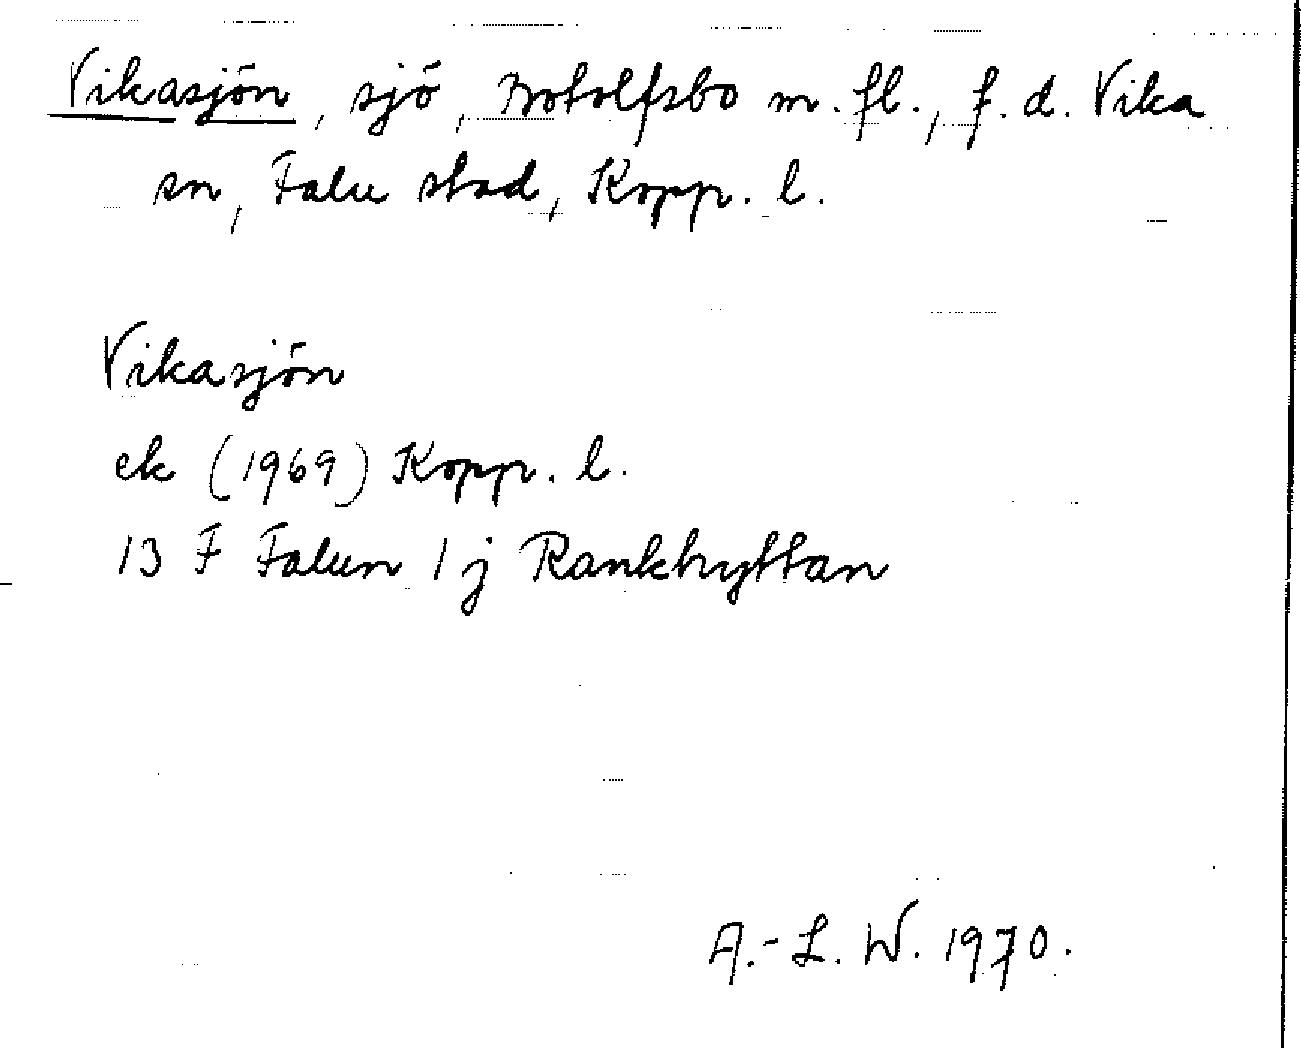 Vikasjön, sjö, Botolfsbo m. fl., f. d. Vika
sn, Falu stad, Kopp. l.
Vikasjön
ek (1969) Kopp. l.
13 F Falun 1 j Rankhyttan
A.-L. W. 1970.